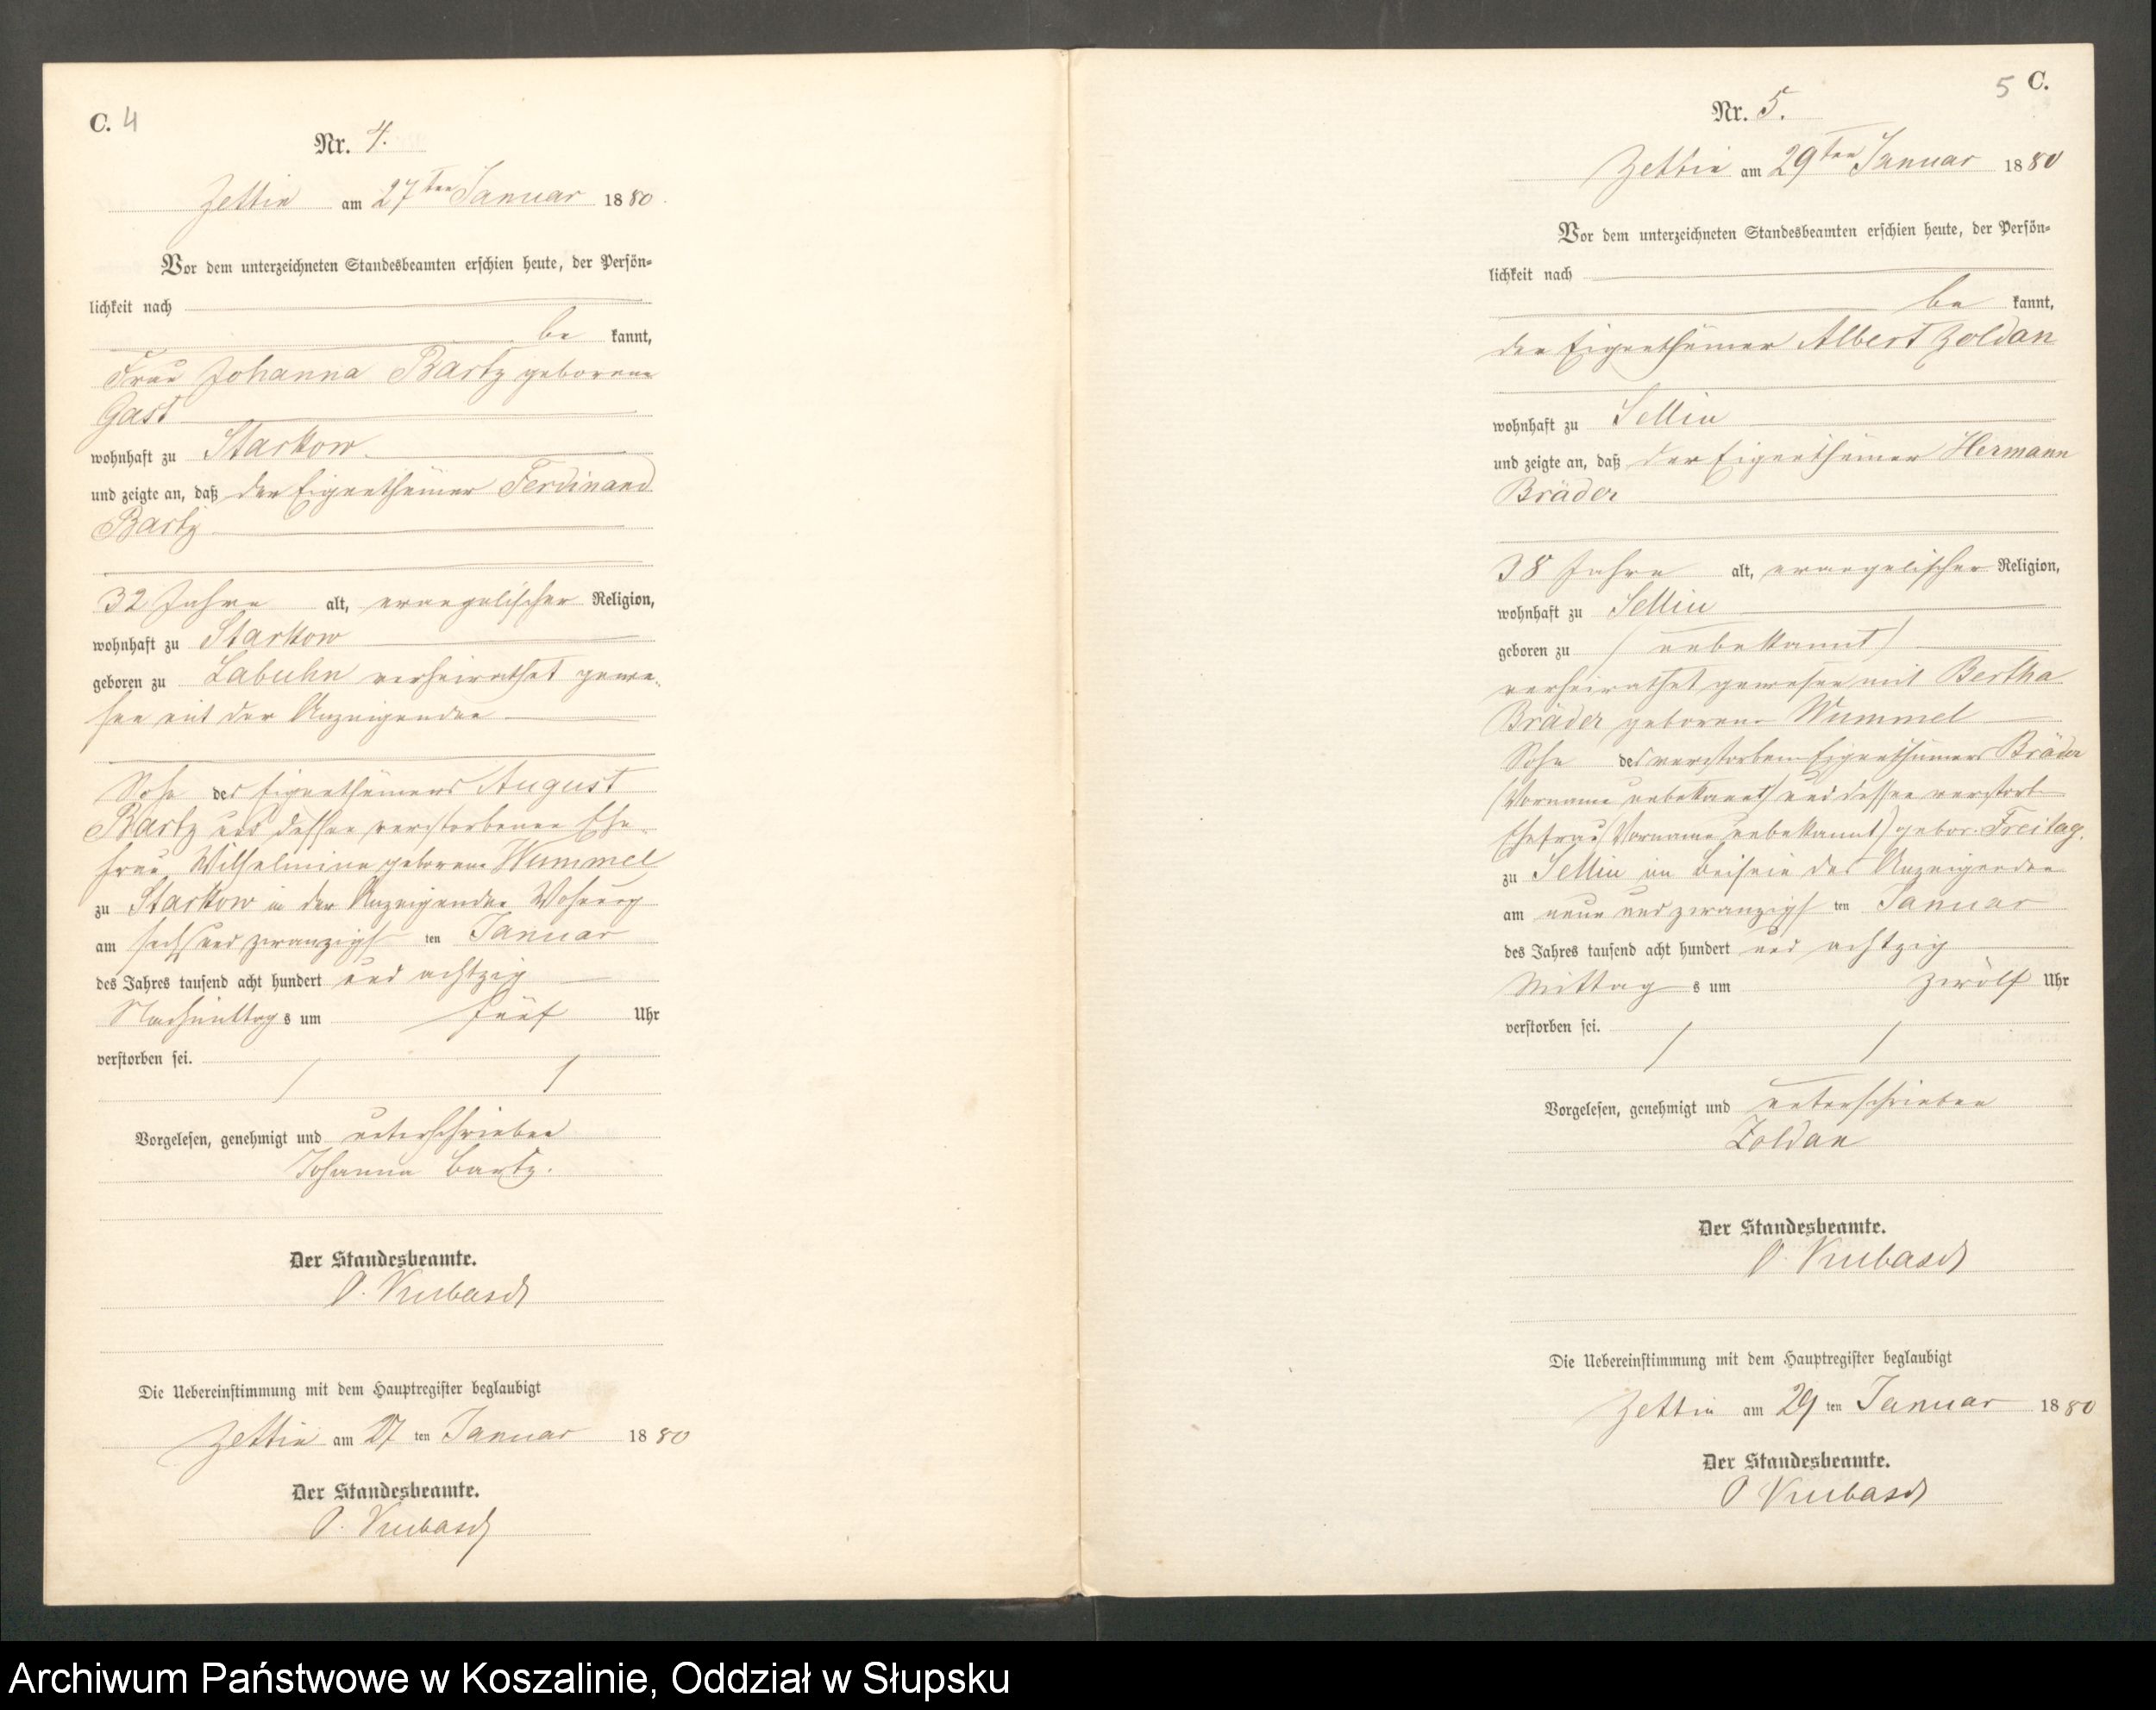 C. 4
Nr. 4.
Zettin am 27ten Januar 1880.
Vor dem unterzeichneten Standesbeamten erschien heute, der Persön-
lichkeit nach
be kannt,
Frau Johanna Bartz geborene
Gast
wohnhaft zu Starkow
und zeigte an, daß der Eigenthümer Ferdinand
Bartz
32 Jahre alt, evangelischer Religion,
wohnhaft zu Starkow
geboren zu Labuhn verheirathet gewe-
sen mit der Anzeigenden
Sohn des Eigenthümers August
Bartz und dessen verstorbenen Ehe-
frau Wilhelmine geborene Wummel
zu Starkow in der Anzeigenden Wohnung
am sechs und zwanzigsten Januar
des Jahres tausend acht hundert und achtzig
Nachmittags um fünf Uhr
verstorben sei.
Vorgelesen, genehmigt und unterschrieben
Johanna Bartz.
Der Standesbeamte.
O. Kubasch
Die Uebereinstimmung mit dem Hauptregister beglaubigt
Zettin am 27 ten Januar 1880
Der Standesbeamte.
O. Kubasch
5 C.
Nr. 5.
Zettin am 29ten Januar 1880
Vor dem unterzeichneten Standesbeamten erschien heute, der Persön-
lichkeit nach
be kannt,
der Eigenthümer Albert Zoldan
wohnhaft zu Sellin
und zeigte an, daß der Eigenthümer Hermann
Bräder
38 Jahre alt, evangelischer Religion,
wohnhaft zu Sellin
geboren zu / unbekannt /
verheirathet gewesen mit Bertha
Bräder geborene Wummel
Sohn des verstorbenen Eigenthümers Bräder
(Vorname unbekannt) und dessen verstorb.
Ehefrau (Vorname unbekannt) gebor. Freitag.
zu Sellin im Beisein des Anzeigenden
am neun und zwanzigsten Januar
des Jahres tausend acht hundert und achtzig
Mittags um zwölf Uhr
verstorben sei.
Vorgelesen, genehmigt und unterschrieben
Zoldan
Der Standesbeamte.
O. Kubasch
Die Uebereinstimmung mit dem Hauptregister beglaubigt
Zettin am 29 ten Januar 1880
Der Standesbeamte.
O Kubasch
Archiwum Państwowe w Koszalinie, Oddział w Słupsku